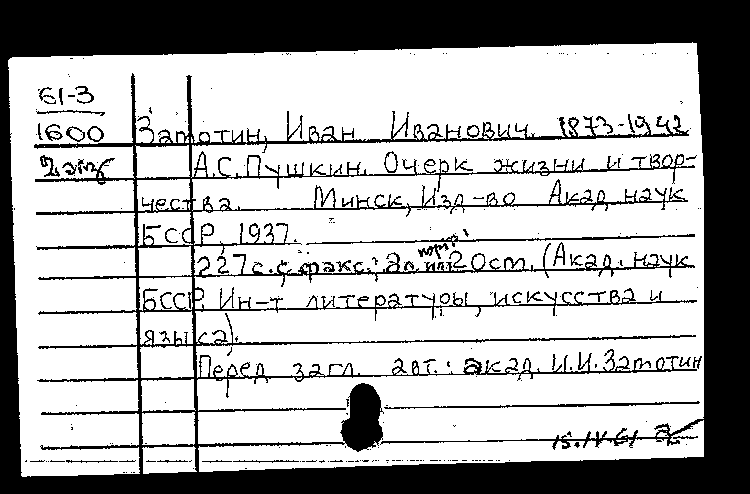 61-3
1600 Затотин, Иван Иванович. 1873-1942
2 экз А.С. Пушкин. Очерк жизни и твор-
чества. Минск, Изд-во Акад. наук
БССР, 1937.
портр.
227с. с факс.; 2л. илл 20 ст. (Акад. наук
БССР. Ин-т литературы, искусства и
языка).
Перед загл. авт.: акад. И.И. Затотин
15.IV-61